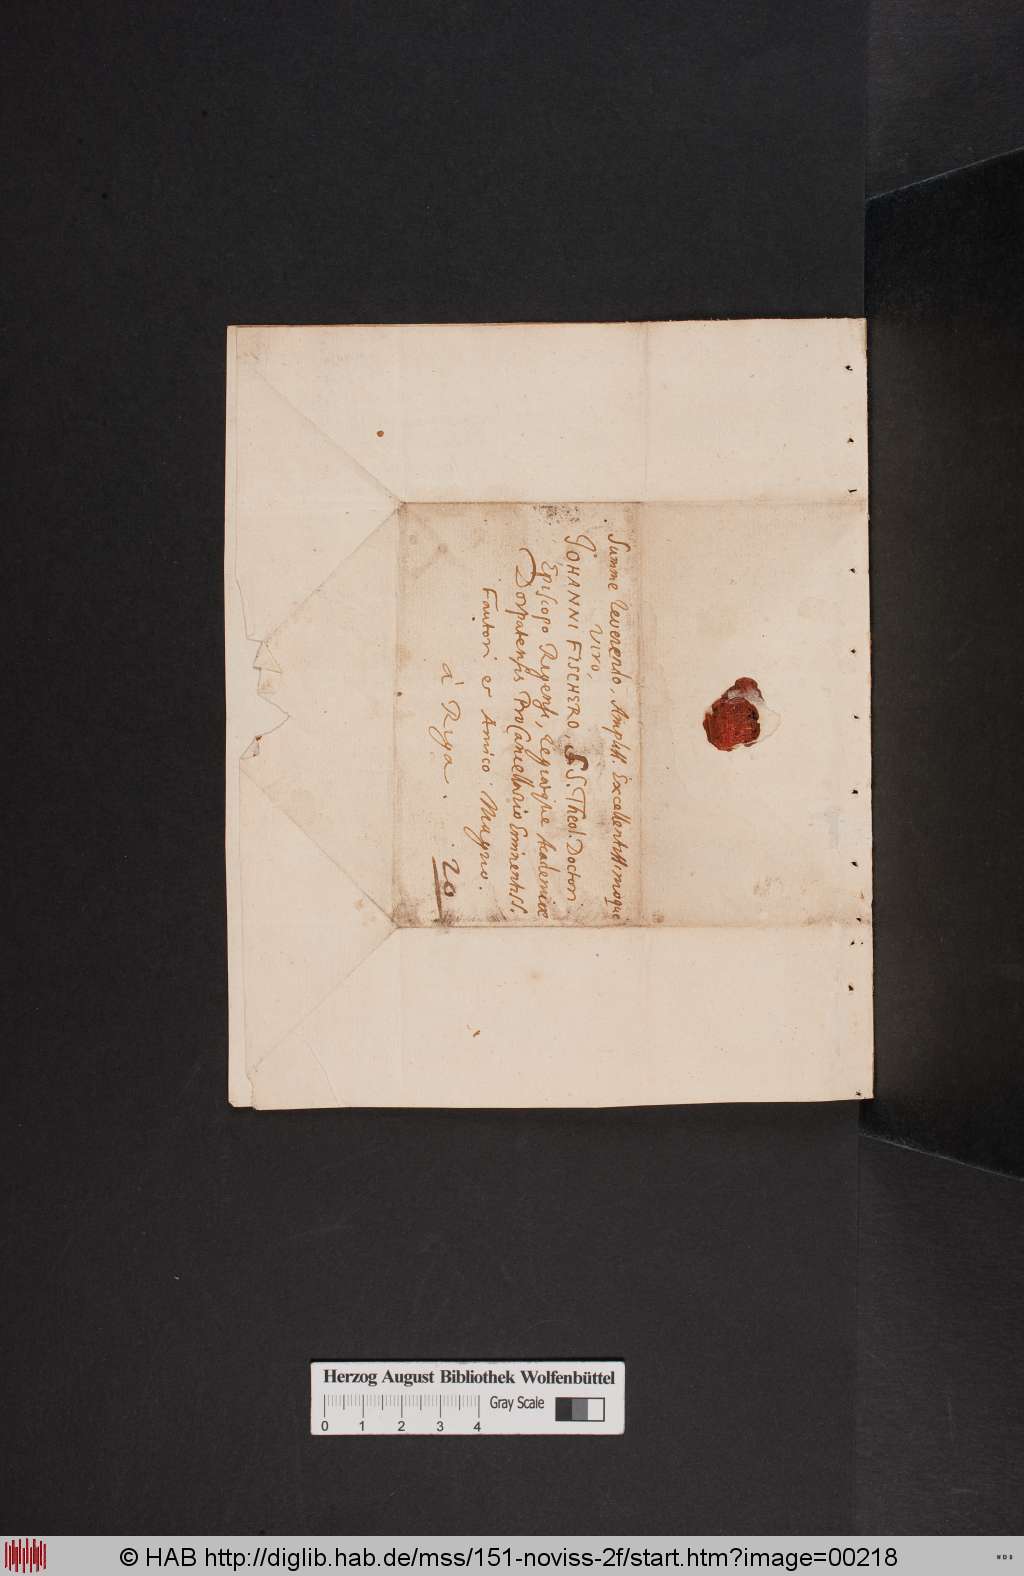 Summe Reverendo, Ampliss. Excellentissimoque
Viro,
JOHANNI FISCHERO, S.S. Theol. Doctori
Episcopo Rigensi, Regiaeque Academiae
Dorpatensis ProCancellario Eminentiss.
Fautori et Amico Magno.
à Ryga.
20
Herzog August Bibliothek Wolfenbüttel
Gray Scale
0 1 2 3 4
© HAB http://diglib.hab.de/mss/151-noviss-2f/start.htm?image=00218